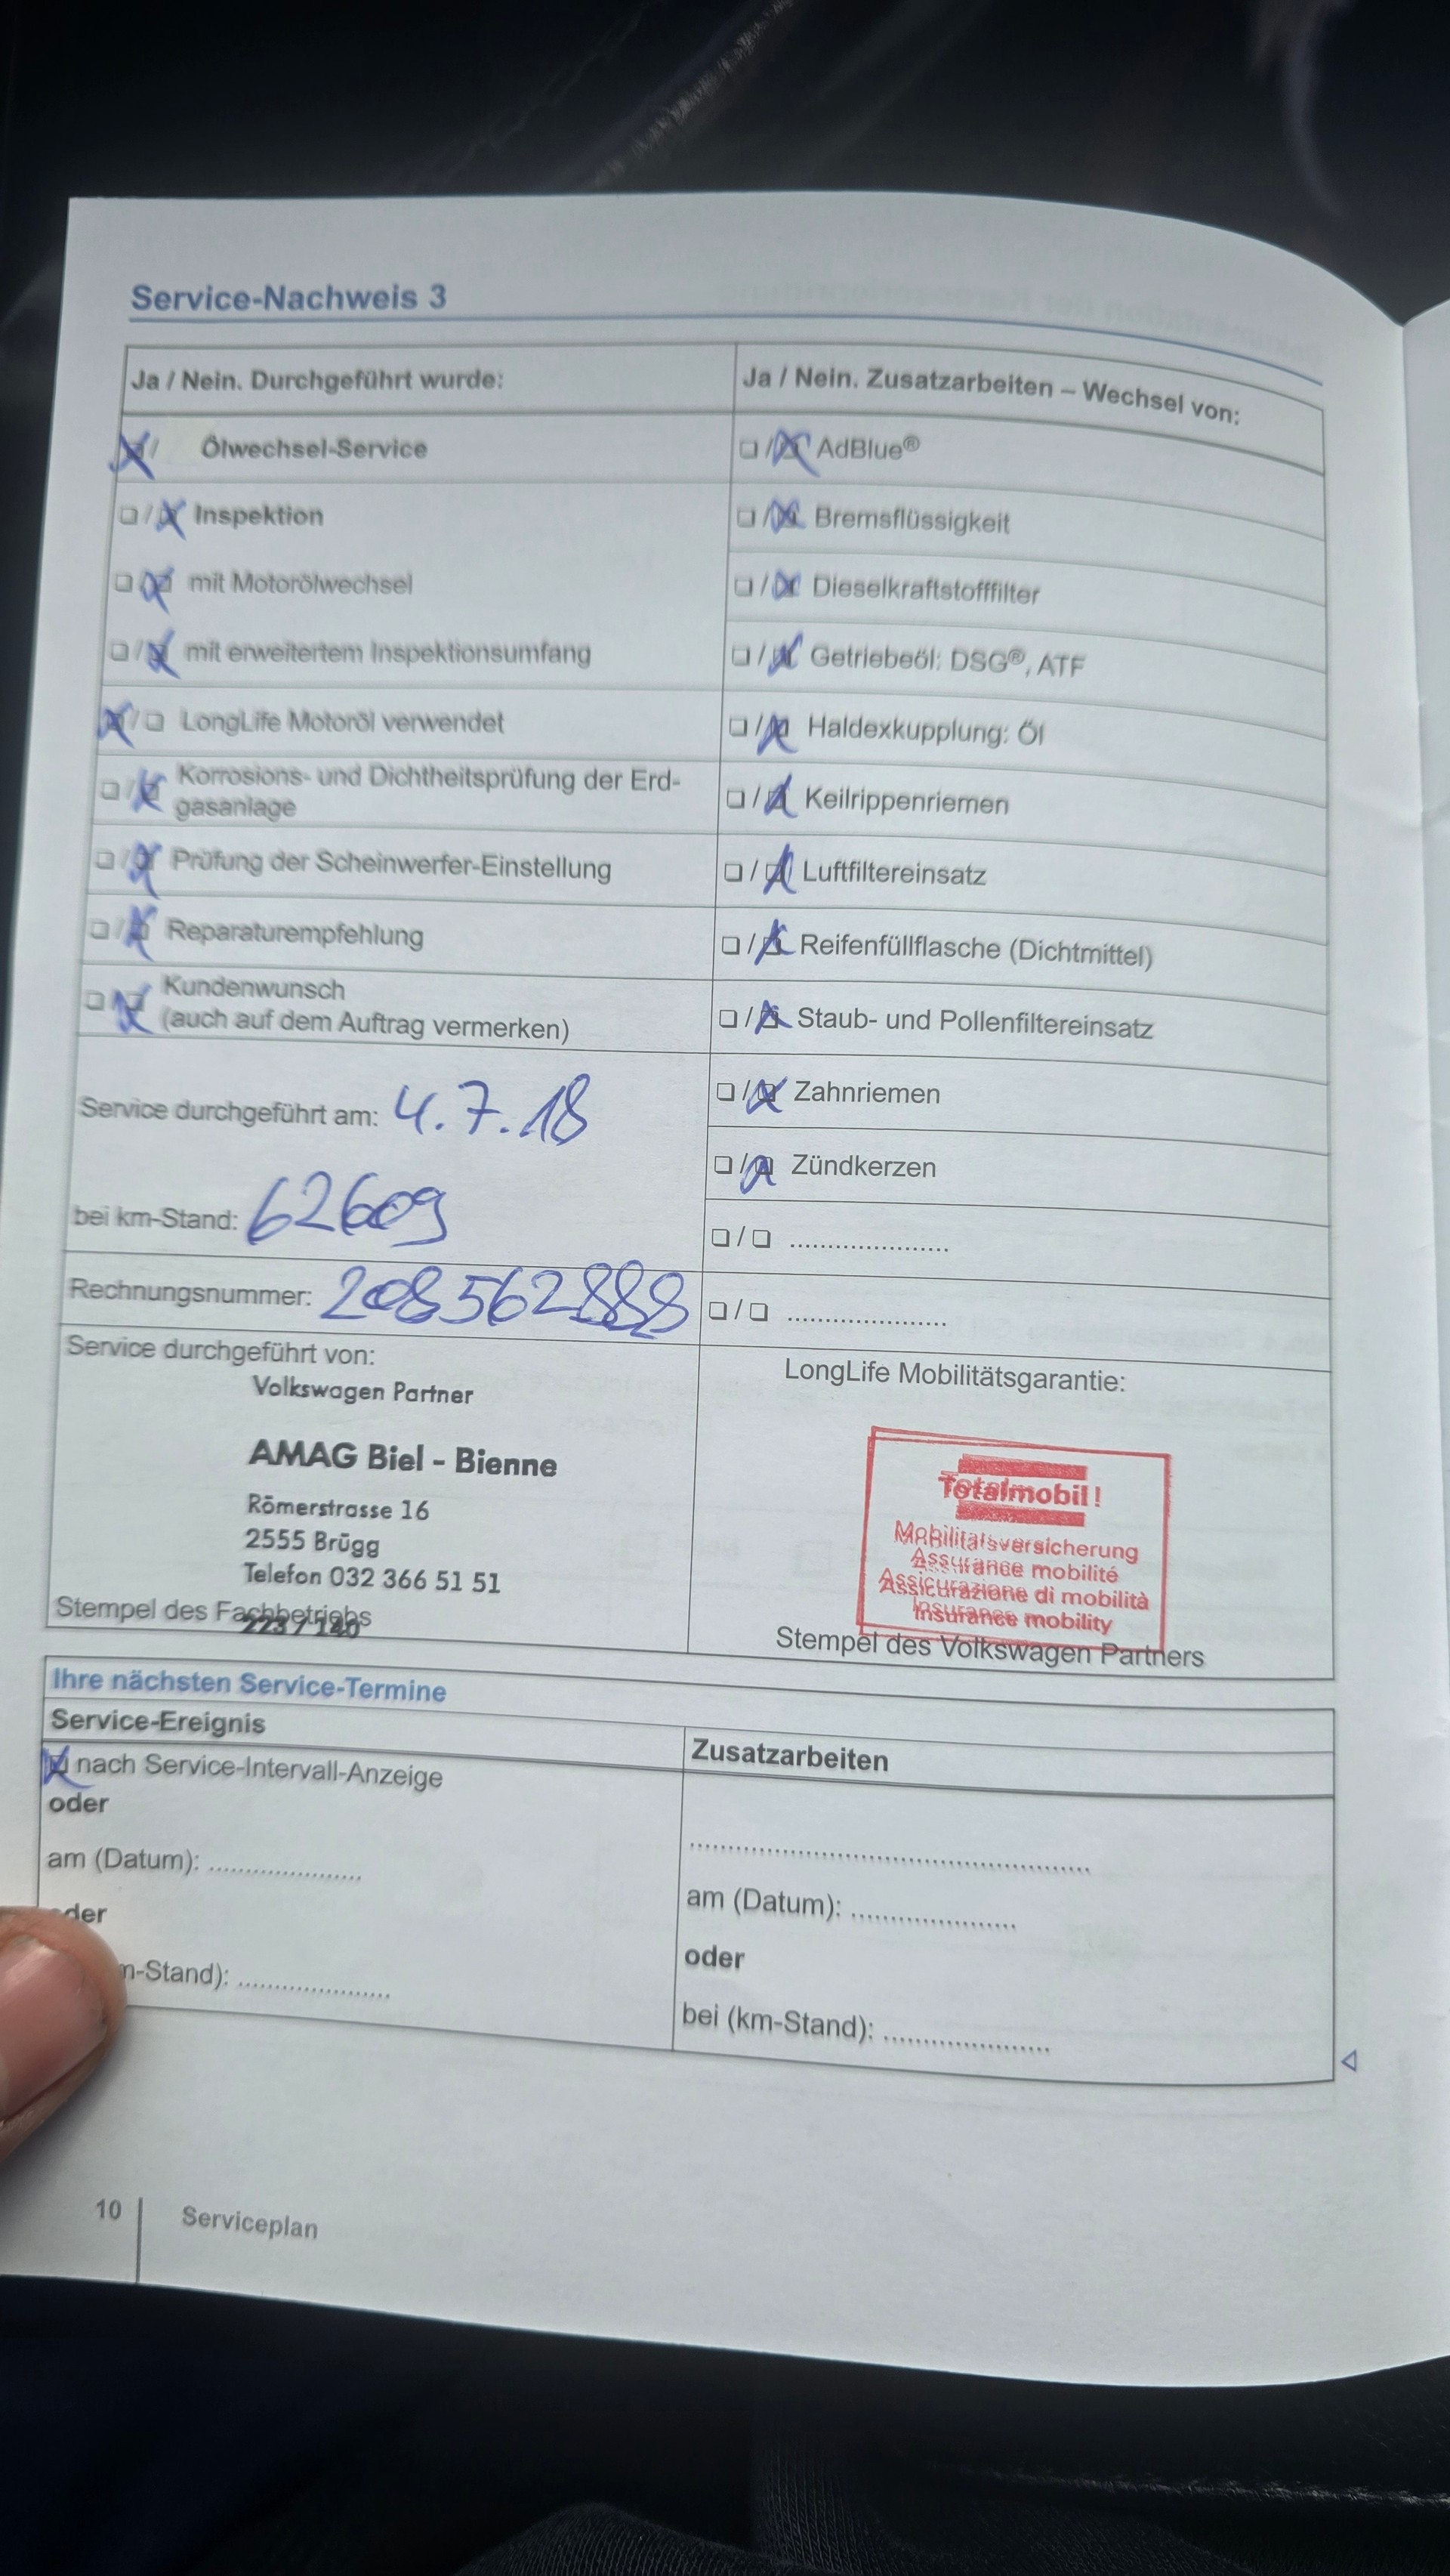 Service-Nachweis 3
Ja / Nein. Durchgeführt wurde:
Ölwechsel-Service
Inspektion
mit Motorölwechsel
mit erweitertem Inspektionsumfang
LongLife Motoröl verwendet
Korrosions- und Dichtheitsprüfung der Erd-
gasanlage
Prüfung der Scheinwerfer-Einstellung
Reparaturempfehlung
Kundenwunsch
(auch auf dem Auftrag vermerken)
Service durchgeführt am: 4.7.18
bei km-Stand: 62609
Rechnungsnummer: 208562888
Service durchgeführt von:
Volkswagen Partner
AMAG Biel - Bienne
Römerstrasse 16
2555 Brügg
Telefon 032 366 51 51
Stempel des Fachbetriebs
223 / 140
Ja / Nein. Zusatzarbeiten – Wechsel von:
AdBlue®
Bremsflüssigkeit
Dieselkraftstofffilter
Getriebeöl: DSG®, ATF
Haldexkupplung: Öl
Keilrippenriemen
Luftfiltereinsatz
Reifenfüllflasche (Dichtmittel)
Staub- und Pollenfiltereinsatz
Zahnriemen
Zündkerzen
LongLife Mobilitätsgarantie:
Totalmobil!
Mobilitätsversicherung
Assurance mobilité
Assicurazione di mobilità
Insurance mobility
Stempel des Volkswagen Partners
Ihre nächsten Service-Termine
Service-Ereignis
nach Service-Intervall-Anzeige
oder
am (Datum): ....................
der
m-Stand): ....................
Zusatzarbeiten
am (Datum): ....................
oder
bei (km-Stand): ....................
10
Serviceplan